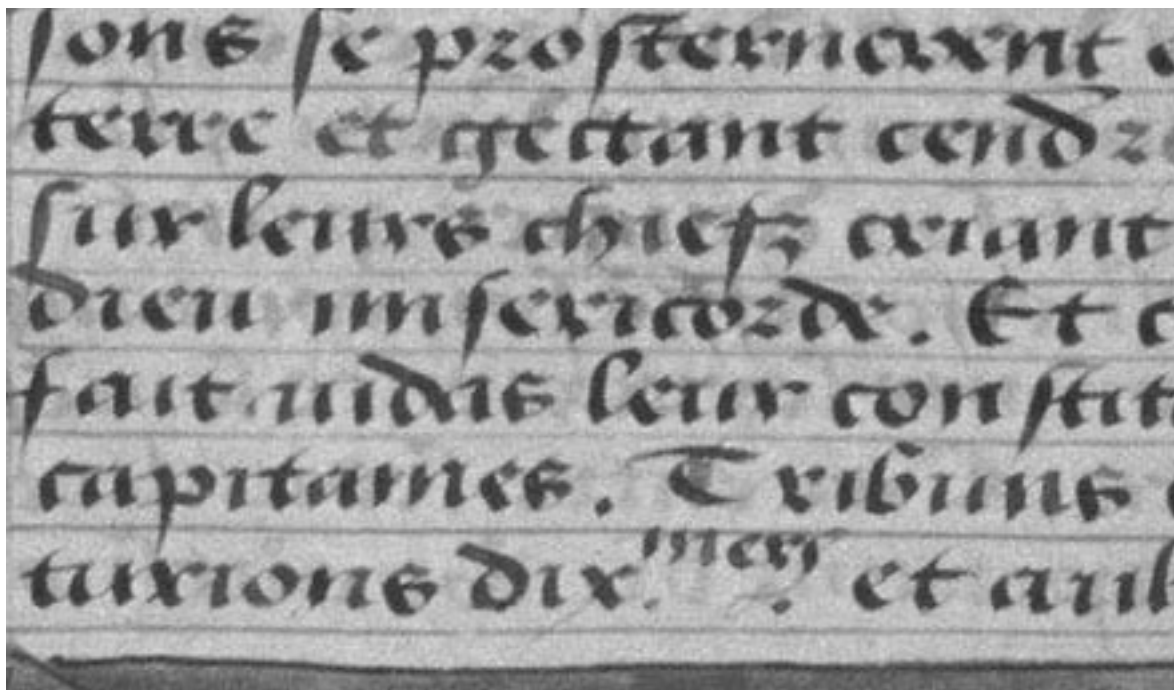 sons se prosternerent
terre et gectant cendr
sur leurs chiefz criant
dieu misericorde. Et
fait iudas leur constit
capitaines. Tribuns
turions dix. mers. et aul